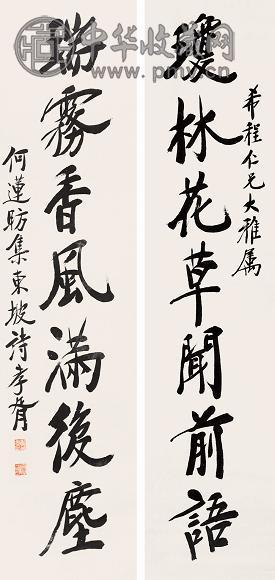 希程仁兄大雅属
瓊林花草聞前語
瑞霧香風滿後塵
何蓮舫集東坡詩孝胥
中华收藏网
www.pmcv.cn